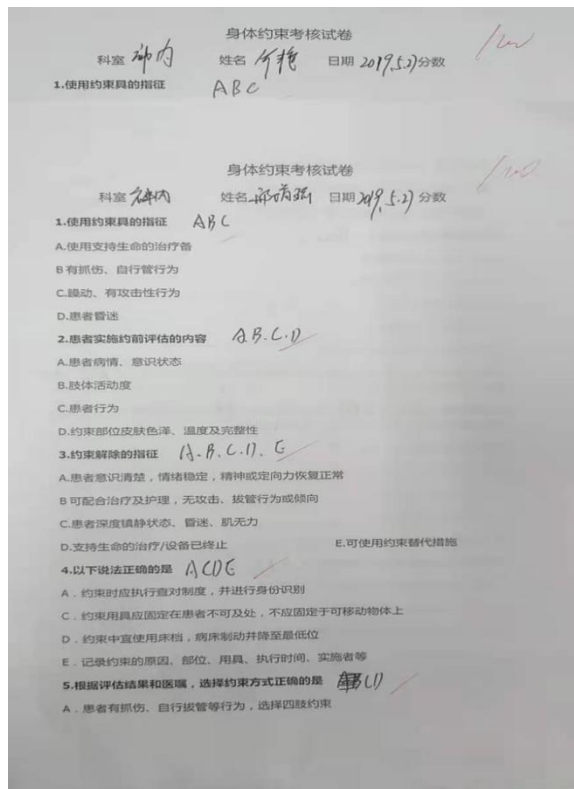 身体约束考核试卷
科室 神内 姓名 日期 2019.5.27 分数 100
1.使用约束具的指征 ABC
身体约束考核试卷
科室 神内 姓名 日期 2019.5.27 分数 100
1.使用约束具的指征 ABC
A.使用支持生命的治疗备
B 有抓伤、自行管行为
C.躁动、有攻击性行为
D.患者昏迷
2.患者实施约前评估的内容 A.B.C.D
A.患者病情、意识状态
B.肢体活动度
C.患者行为
D.约束部位皮肤色泽、温度及完整性
3.约束解除的指征 A.B.C.D.E
A.患者意识清楚，情绪稳定，精神或定向力恢复正常
B 可配合治疗及护理，无攻击、拔管行为或倾向
C.患者深度镇静状态、昏迷、肌无力
D.支持生命的治疗/设备已终止 E.可使用约束替代措施
4.以下说法正确的是 ACDE
A．约束时应执行查对制度，并进行身份识别
C．约束用具应固定在患者不可及处，不应固定于可移动物体上
D．约束中宜使用床档，病床制动并降至最低位
E．记录约束的原因、部位、用具、执行时间、实施者等
5.根据评估结果和医嘱，选择约束方式正确的是 BCD
A．患者有抓伤、自行拔管等行为，选择四肢约束